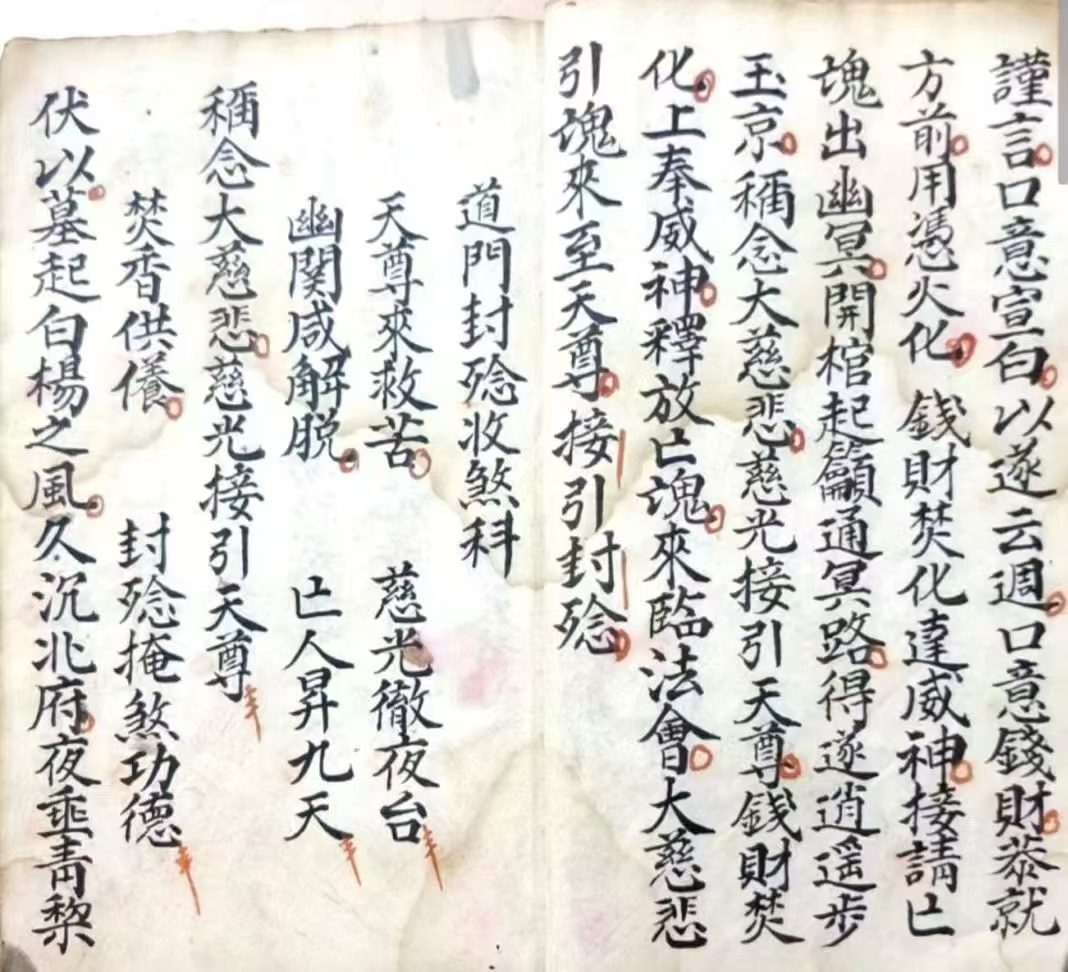 謹言口意宣白以遂云週口意錢財恭就
方前用憑火化 錢財焚化達威神接請亡
魂出幽冥開棺起龥通冥路得遂逍遥步
玉京稱念大慈悲慈光接引天尊錢財焚
化上奉威神釋放亡魂來臨法會大慈悲
引魂來至天尊接引封殮
道門封殮收煞科
天尊來救苦 慈光徹夜台
幽関咸解脱 亡人昇九天
稱念大慈悲慈光接引天尊
焚香供儀 封殮掩煞功德
伏以墓起白楊之風久沉北府夜垂青黎